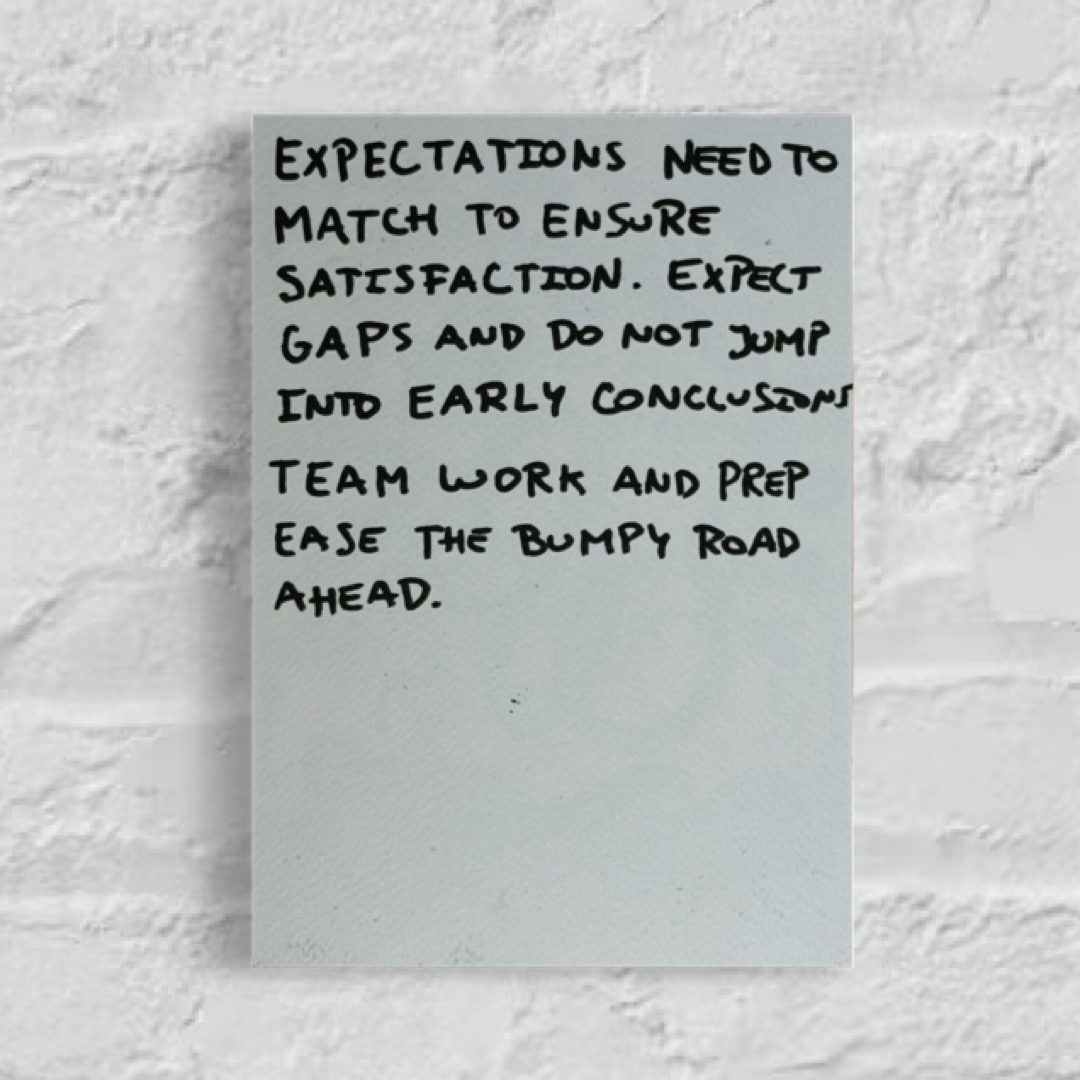 EXPECTATIONS NEED TO
MATCH TO ENSURE
SATISFACTION. EXPECT
GAPS AND DO NOT JUMP
INTO EARLY CONCLUSIONS
TEAM WORK AND PREP
EASE THE BUMPY ROAD
AHEAD.